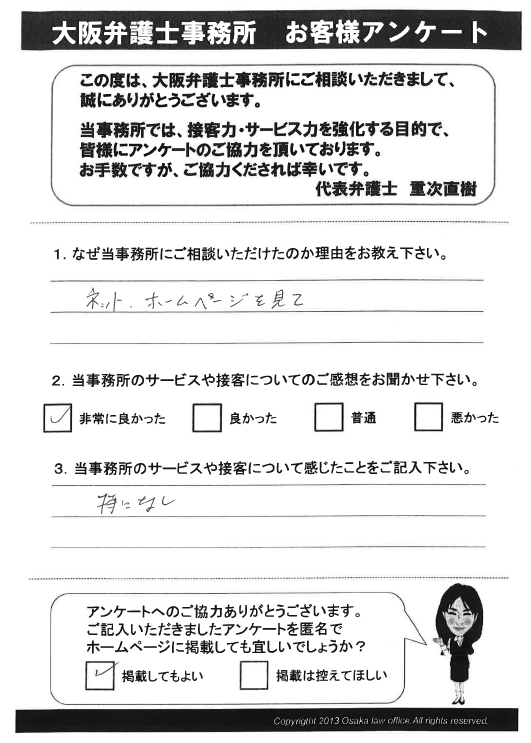 大阪弁護士事務所 お客様アンケート
この度は、大阪弁護士事務所にご相談いただきまして、
誠にありがとうございます。
当事務所では、接客力・サービス力を強化する目的で、
皆様にアンケートのご協力を頂いております。
お手数ですが、ご協力くだされば幸いです。
代表弁護士 重次直樹
1．なぜ当事務所にご相談いただけたのか理由をお教え下さい。
ネット．ホームページを見て
2．当事務所のサービスや接客についてのご感想をお聞かせ下さい。
非常に良かった 良かった 普通 悪かった
3．当事務所のサービスや接客について感じたことをご記入下さい。
特になし
アンケートへのご協力ありがとうございます。
ご記入いただきましたアンケートを匿名で
ホームページに掲載しても宜しいでしょうか？
掲載してもよい 掲載は控えてほしい
Copyright 2013 Osaka law office.All rights reserved.